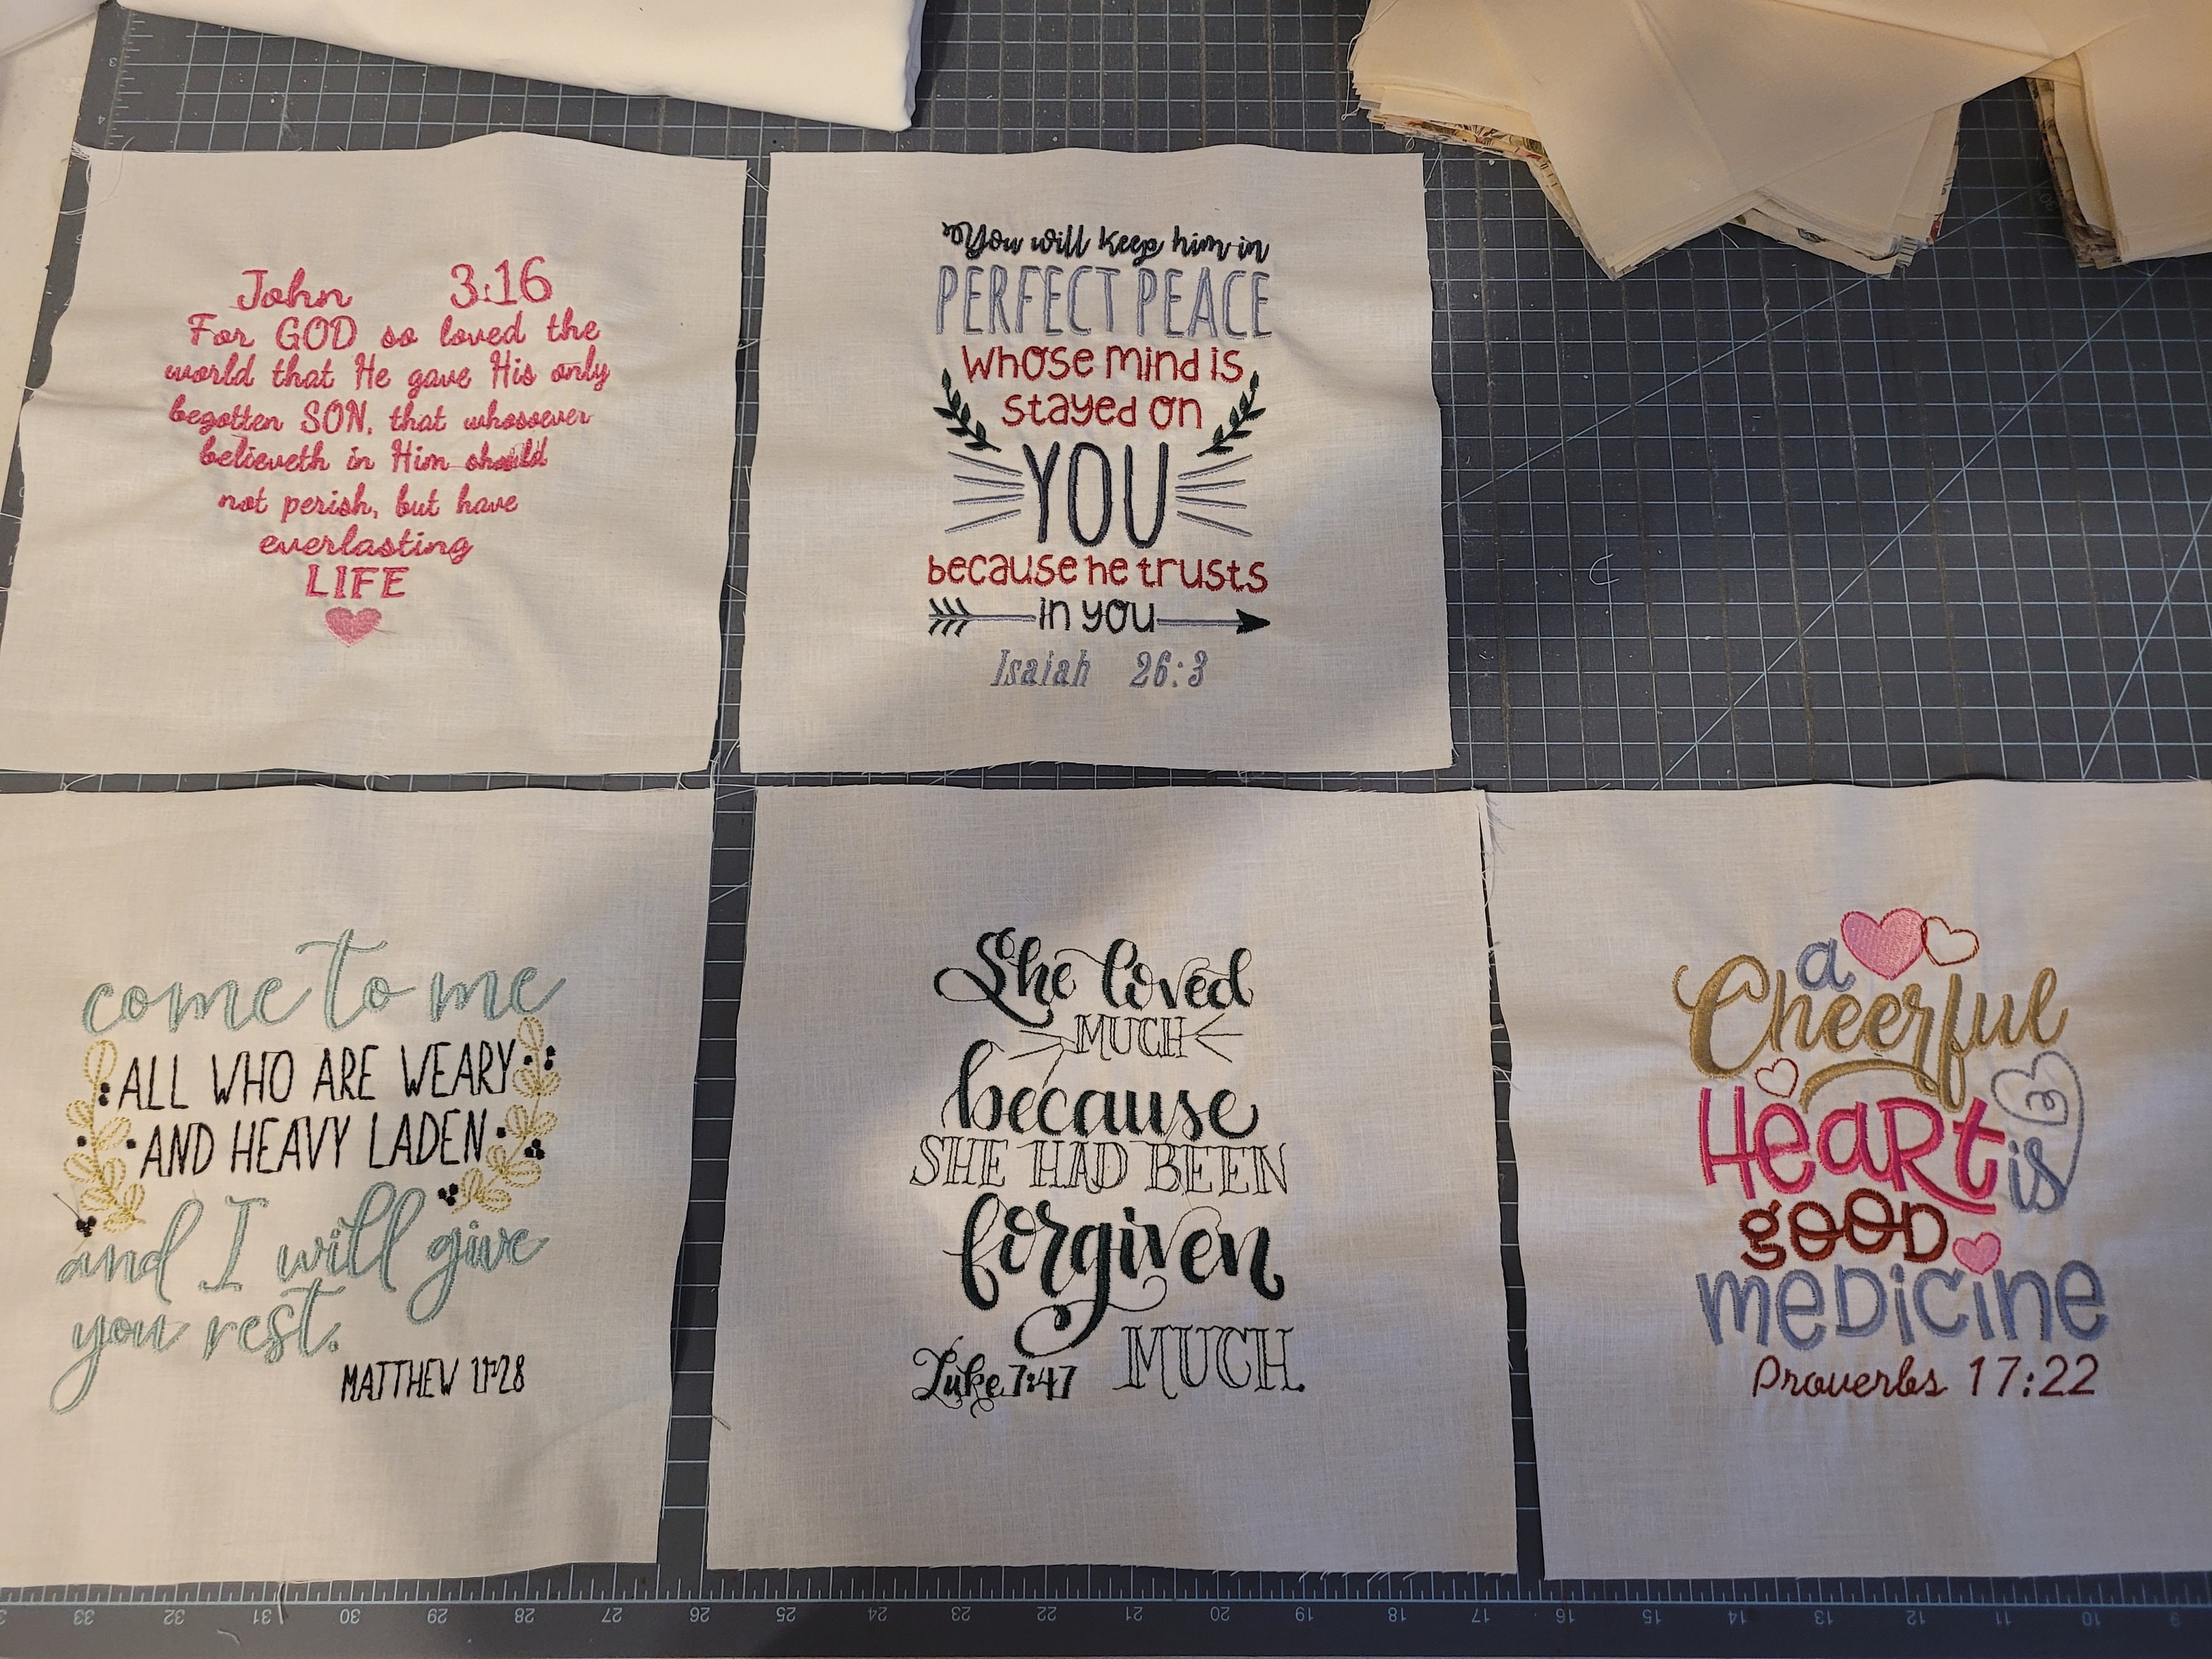 John 3:16
For GOD so loved the
world that He gave His only
begotten SON, that whosoever
believeth in Him should
not perish, but have
everlasting
LIFE
You will keep him in
PERFECT PEACE
whose mind is
stayed on
YOU
because he trusts
in you
Isaiah 26:3
come to me
ALL WHO ARE WEARY
AND HEAVY LADEN
and I will give
you rest.
MATTHEW 11:28
She loved
MUCH
because
SHE HAD BEEN
forgiven
MUCH.
Luke 7:47
a
Cheerful
Heart is
good
medicine
Proverbs 17:22
33 32 31 30 29 28 27 26 25 24 23 22 21 20 19 18 17 16 15 14 13 12 11 10 9